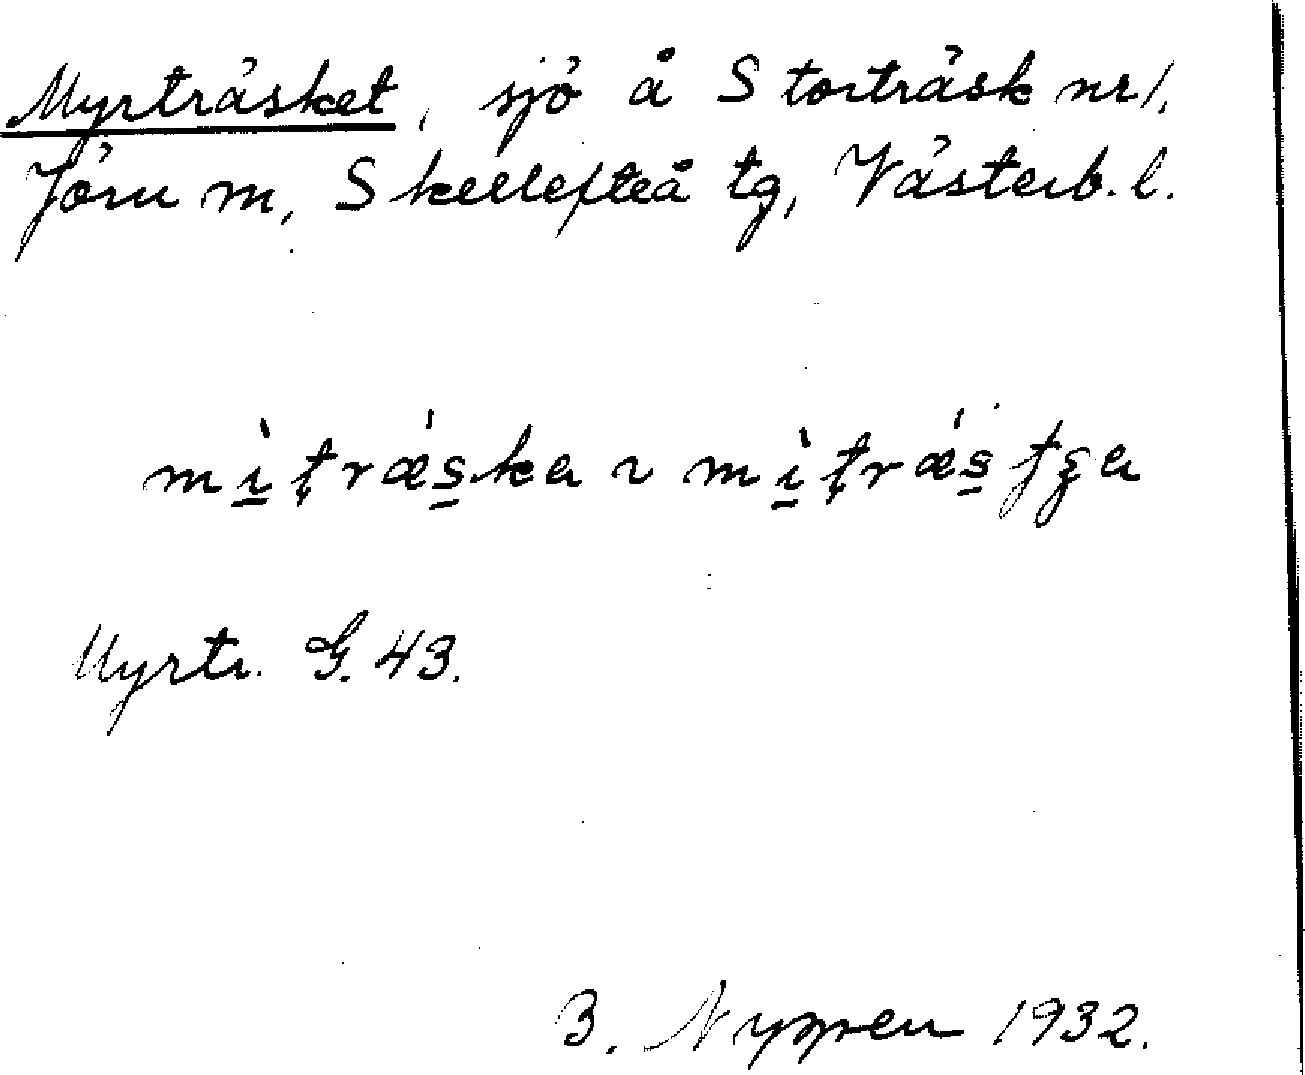 Myrträsket, sjö å Storträsk nr 1.
Jörn sn, Skellefteå tg, Västerb. l.
mì̠ƫræ̍s̠ka ~ mì̠ƫræ̍s̠
Myrtr. G. 43.
B. Nyppen 1932.